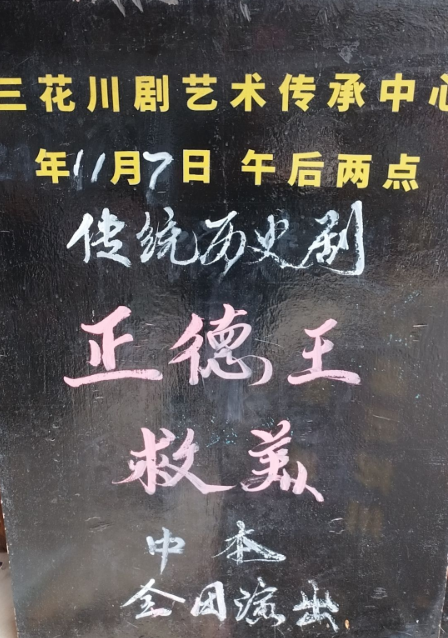 三花川剧艺术传承中心
年11月7日 午后两点
传统历史剧
正德王
救美
中本
全团演出